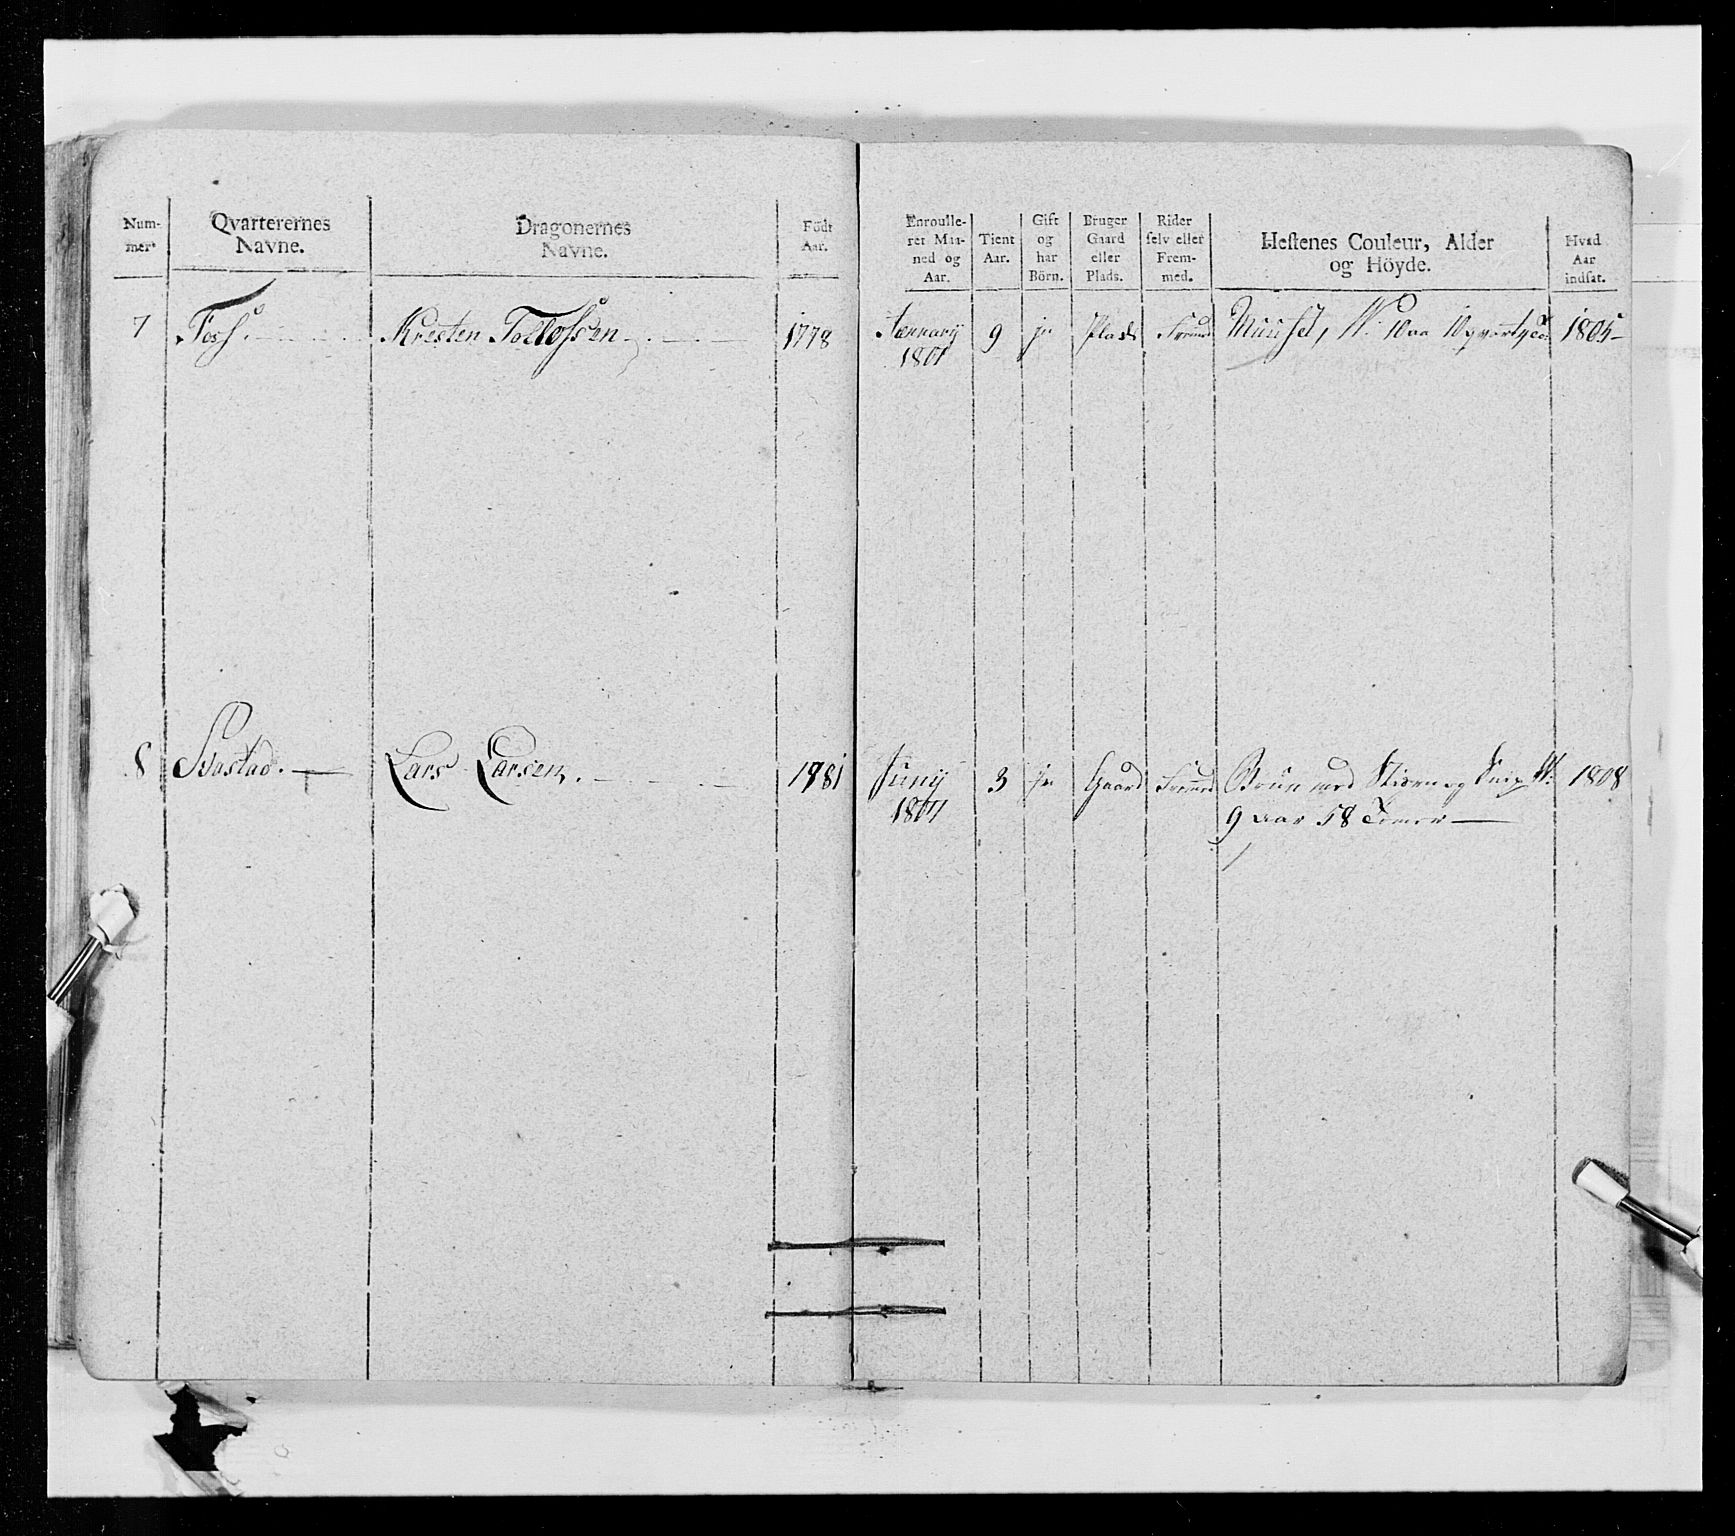 Num-
mer
Qvarterernes
Navne.
Dragonernes
Navne.
Födt
Aar.
Enroulle-
ret Maa-
ned og
Aar.
Tient
Aar.
Gift
og
har
Börn.
Bruger
Gaard
eller
Plads.
Rider
selv eller
Frem-
med.
Hestenes Couleur, Alder
og Höyde.
Hvad
Aar
indsat.
7 Foss. Kresten Tollossen 1778 Jannarij 9 ja Plads Fremed 10 aar 10 qvarteer 1805
1801
8 Bastad. Lars Larsen. 1781 Junij 3 ja Gaard Fremed Bruun med Stiern og Snip W: 1808
1807 9 aar 58 Tomer